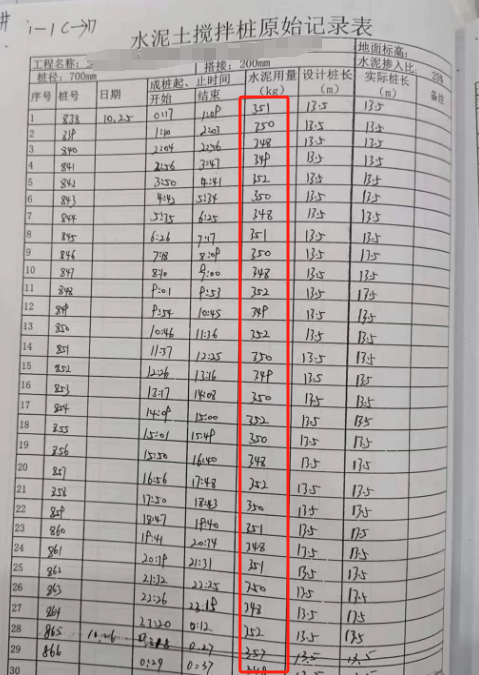 1-1C→17
水泥土搅拌桩原始记录表
工程名称: 搭接: 200mm 地面标高:
桩径: 700mm 水泥掺入比: 25%
序号 桩号 日期 成桩起、止时间 水泥用量 设计桩长 实际桩长 备注
开始 结束 (kg) (m) (m)
1 838 10.25 0:17 1:09 351 13.5 13.5
2 839 1:10 2:03 350 13.5 13.5
3 840 2:04 2:56 348 13.5 13.5
4 841 2:56 3:47 349 13.5 13.5
5 842 3:50 4:41 352 13.5 13.5
6 843 4:42 5:34 350 13.5 13.5
7 844 5:35 6:25 348 13.5 13.5
8 845 6:26 7:17 351 13.5 13.5
9 846 7:18 8:09 350 13.5 13.5
10 847 8:10 9:00 348 13.5 13.5
11 848 9:01 9:53 352 13.5 13.5
12 849 9:54 10:45 349 13.5 13.5
13 850 10:46 11:36 352 13.5 13.5
14 851 11:37 12:25 350 13.5 13.5
15 852 12:26 13:16 349 13.5 13.5
16 853 13:17 14:08 350 13.5 13.5
17 854 14:09 15:00 352 13.5 13.5
18 855 15:01 15:49 350 13.5 13.5
19 856 15:50 16:40 348 13.5 13.5
20 857 16:56 17:48 352 13.5 13.5
21 858 17:50 18:43 350 13.5 13.5
22 859 18:47 19:40 351 13.5 13.5
23 860 19:41 20:34 348 13.5 13.5
24 861 20:39 21:31 351 13.5 13.5
25 862 21:32 22:25 350 13.5 13.5
26 863 22:26 23:19 348 13.5 13.5
27 864 23:20 0:12 352 13.5 13.5
28 865 10.26 0:27 352 13.5 13.5
29 866 0:29 0:37
30